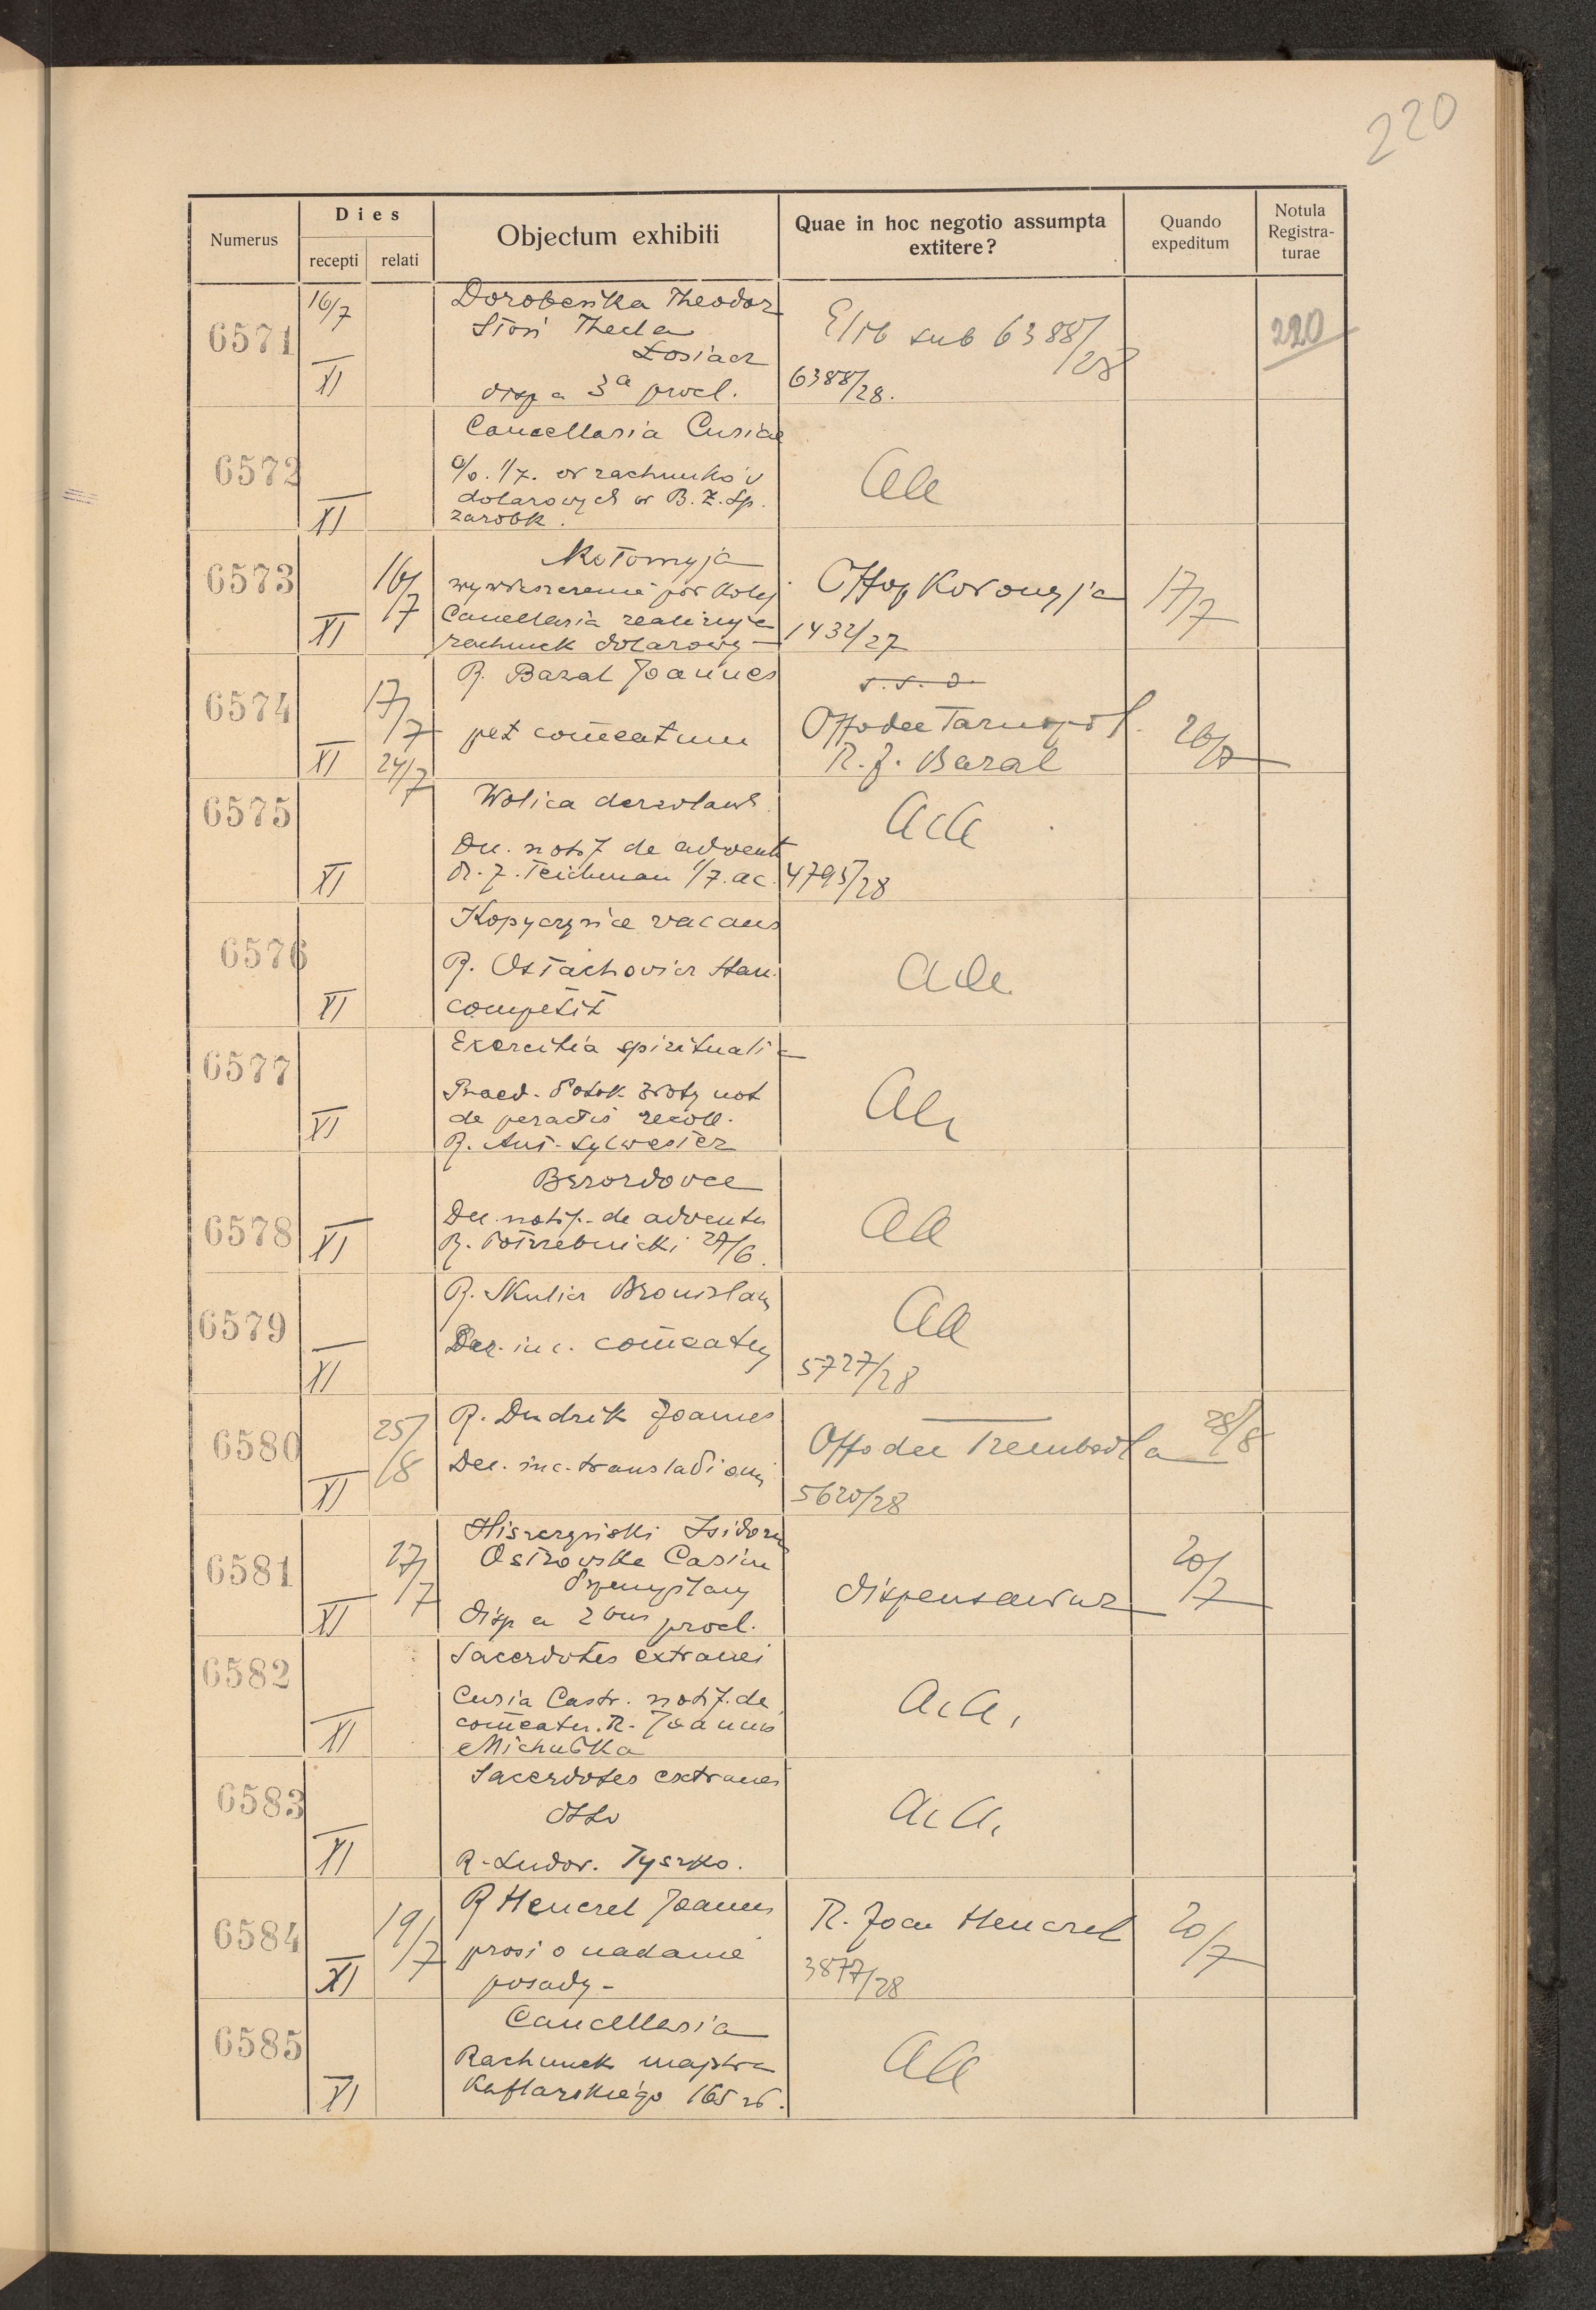 220
Numerus
Dies
recepti
relati
Objectum exhibiti
Quae in hoc negotio assumpta
extitere?
Quando
expeditum
Notula
Registra-
turae
6571
16/7
XI
Theodor
Thecla
Łosiacz
disp a 3ª procl.
sub 6388/28
6388/28.
220
6572
XI
Cancellaria Curiae
1/7. rachunków
dolarowych w B. Z. Sp.
zarobk.
6573
XI
16/7
Kołomyja
Cancellaria realizuje
rachunek dolarowy
1432/27
17/7
6574
XI
17/7
24/7
R. Baral Joannes
pet comeatum
Offo dec Tarnopol.
R. J. Baral
6575
XI
Wolica
Dec. notif de adventu
R. J. Teichman 1/7. ac.
AcA
4795/28
6576
XI
Kopyczyńce vacans
R. Ostachovicz
competit
6577
XI
Exercitia spiritualia
Potok Złoty not
de peractis recoll.
R. Ant. Sylwester
6578
XI
Dec. notif. de adventu
R. Potrzebnicki
AA
6579
XI
R. Skulicz Bronislav
comeatu
5727/28
AA
6580
XI
25/8
R. Dudzik Joannes
Dec. inc. translationi
Offo dec Trembowla
5620/28
28/8
6581
XI
17/7
Isidor
Ostrowska Casim
Przemyślany
disp a procl.
dispensavur
20/7
6582
XI
Sacerdotes extranei
Curia Castr. notif. de
comeatu. R. Joannis
AcA.
6583
XI
Sacerdotes extranei
R. Ludov. Tyszko.
AcA.
6584
XI
19/7
R Henczel Joannes
prosi o nadanie
posady -
R. Joan Henczel
3877/28
20/7
6585
XI
Cancellaria
Rachunek majstra
Kaflarskiego 165 zł.
AA